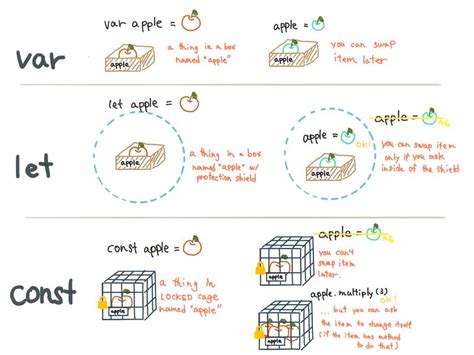 var
var apple =
a thing in a box
named "apple"
apple
apple =
you can swap
item later
apple
let
let apple =
a thing in a box
named "apple" w/
protection shield
apple
apple =
NG
apple =
ok!
you can swap item
only if you ask
inside of the shield
apple
const
const apple =
a thing in
LOCKED cage
named "apple"
apple
apple =
NG
you can't
swap item
later.
apple
apple.multiply(3)
ok!
... but you can ask
the item to change itself
(if the item has method
to do that)
apple